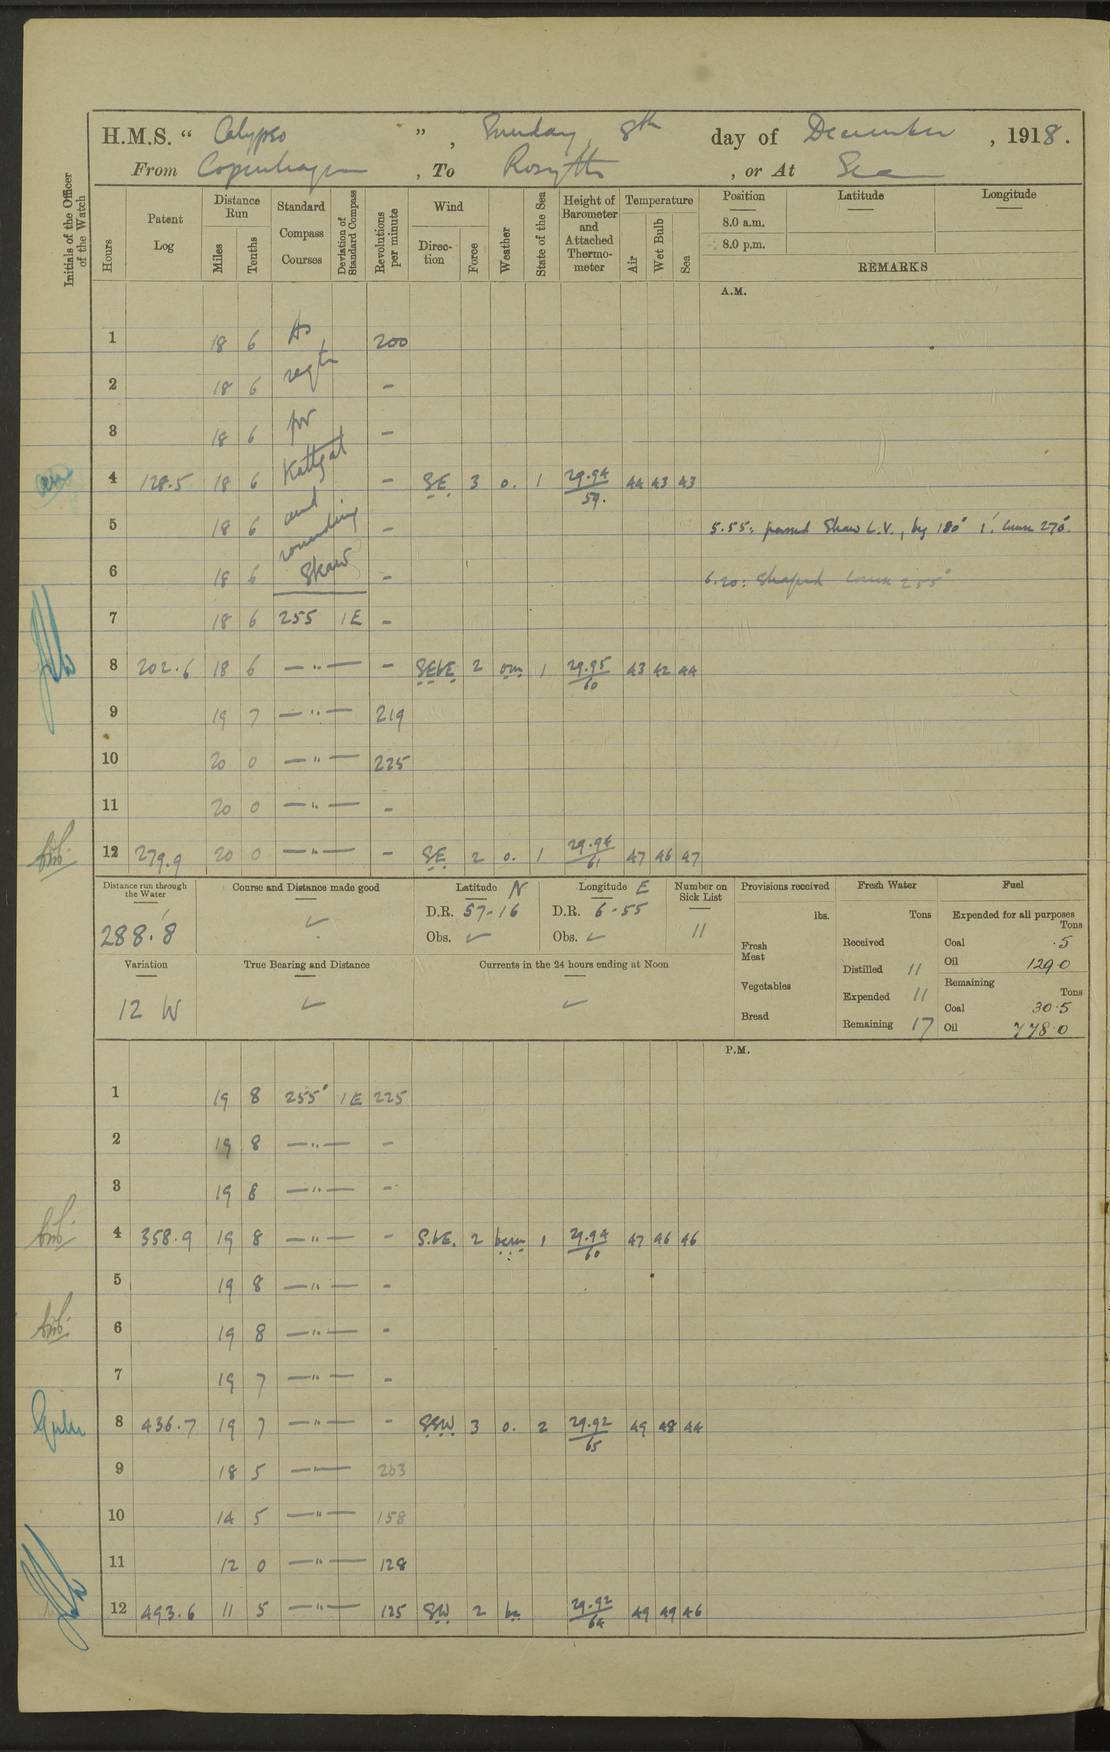 H.M.S. " Calypso ", Sunday 8th day of December, 1918.
From Copenhagen, To Rosyth, or At Sea
Initials of the Officer of the Watch
Hours
Patent Log
Distance Run
Miles
Tenths
Standard Compass Courses
Deviation of Standard Compass
Revolutions per minute
Wind
Direction
Force
Weather
State of the Sea
Height of Barometer and Attached Thermometer
Temperature
Air
Wet Bulb
Sea
Position
8.0 a.m.
8.0 p.m.
Latitude
Longitude
REMARKS
A.M.
1 18 6 As 200
2 18 6 reqte -
3 18 6 for -
4 128.5 18 6 Kattegat - SE. 3 o. 1 29.94/59. 44 43 43
5 18 6 and rounding - 5.55: passed Skaw L.V., by 180° 1' course 270°.
6 18 6 Skaw - 6.20: Shaped course 255°
7 18 6 255 1E -
8 202.6 18 6 — " — - SEbE. 2 om 1 29.95/60 43 42 44
9 19 7 — " — 219
10 20 0 — " — 225
11 20 0 — " — -
12 279.9 20 0 — " — - SE 2 o. 1 29.94/61 47 46 47
Distance run through the Water
288.8
Course and Distance made good
✓
Latitude N
D.R. 57-16
Obs. ✓
Longitude E
D.R. 6-55
Obs. ✓
Number on Sick List
11
Variation
12 W
True Bearing and Distance
✓
Currents in the 24 hours ending at Noon
✓
Provisions received
lbs.
Fresh Meat
Vegetables
Bread
Fresh Water
Tons
Received
Distilled 11
Expended 11
Remaining 17
Fuel
Expended for all purposes
Tons
Coal .5
Oil 129.0
Remaining
Tons
Coal 30.5
Oil 778.0
P.M.
1 19 8 255° 1E 225
2 19 8 — " — -
3 19 8 — " — -
4 358.9 19 8 — " — - S.bE. 2 bcm 1 29.94/60 47 46 46
5 19 8 — " — -
6 19 8 — " — -
7 19 7 — " — -
8 436.7 19 7 — " — - SSW 3 o. 2 29.92/65 49 48 44
9 18 5 — " — 203
10 14 5 — " — 158
11 12 0 — " — 128
12 493.6 11 5 — " — 125 SW 2 bc 29.92/64 49 49 46